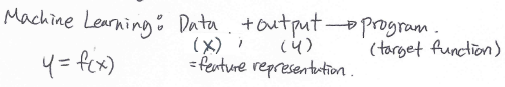 Machine Learning: Data + output → program.
(x) , (y) (target function)
y = f(x) = feature representation.